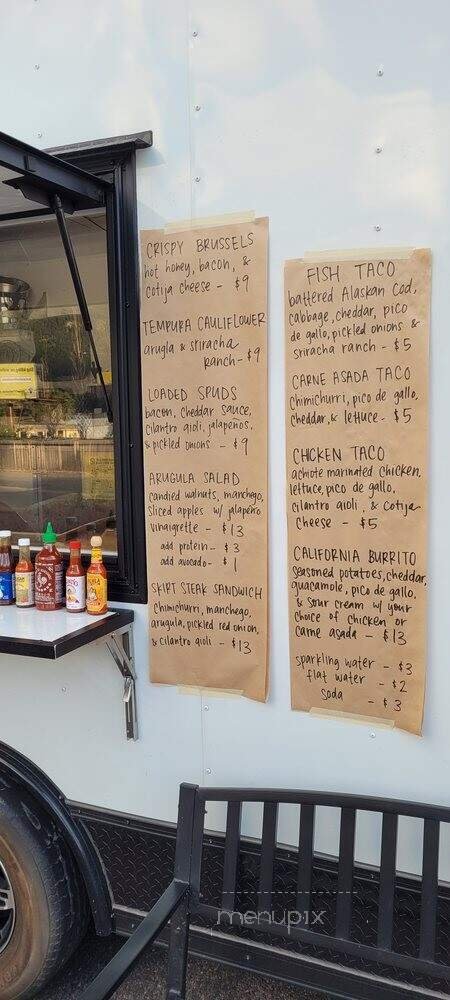 CRISPY BRUSSELS
hot honey, bacon, &
cotija cheese - $9
TEMPURA CAULIFLOWER
arugla & sriracha
ranch - $9
LOADED SPUDS
bacon, cheddar sauce,
cilantro aioli, jalapeños,
& pickled onions - $9
ARUGULA SALAD
candied walnuts, manchego,
sliced apples w/ jalapeño
vinaigrette - $13
add protein - $3
add avocado - $1
SKIRT STEAK SANDWICH
chimichurri, manchego,
arugula, pickled red onion,
& cilantro aioli - $13
FISH TACO
battered Alaskan cod,
cabbage, cheddar, pico
de gallo, pickled onions &
sriracha ranch - $5
CARNE ASADA TACO
chimichurri, pico de gallo,
cheddar, & lettuce - $5
CHICKEN TACO
achiote marinated chicken,
lettuce, pico de gallo,
cilantro aioli, & cotija
cheese - $5
CALIFORNIA BURRITO
seasoned potatoes, cheddar,
guacamole, pico de gallo,
& sour cream w/ your
choice of chicken or
carne asada - $13
sparkling water - $3
flat water - $2
soda - $3
menupix